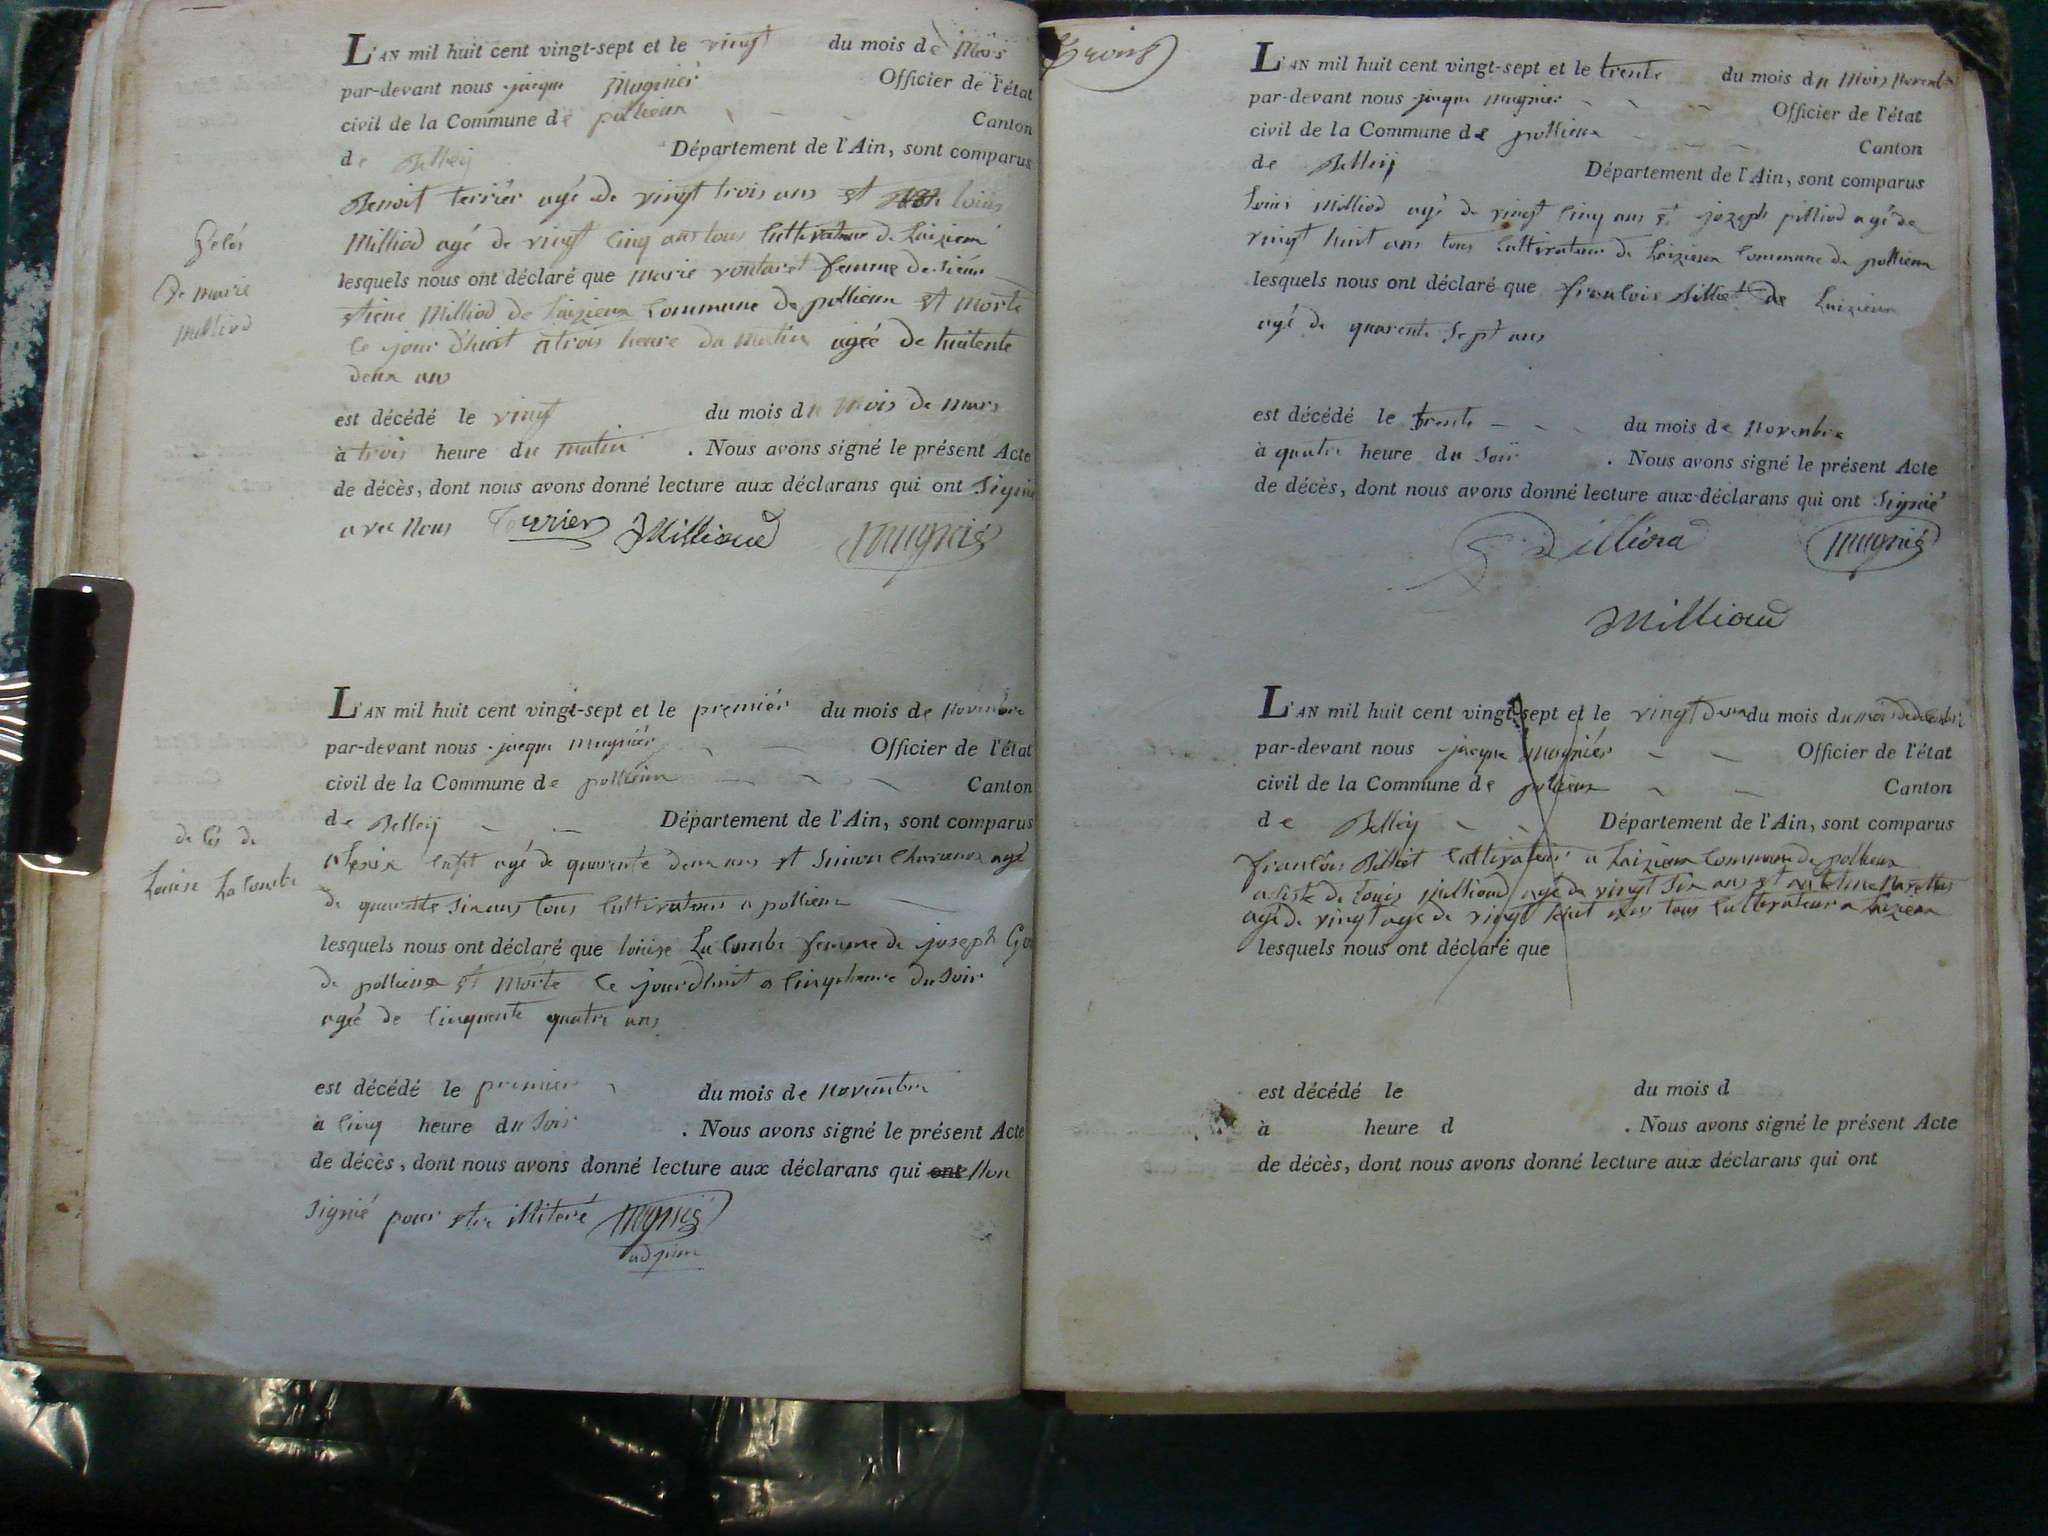 L'AN mil huit cent vingt-sept et le vingt du mois de Mars
par-devant nous jacque Mugnier Officier de l'état
civil de la Commune de pollieux Canton
de Belleÿ Département de l'Ain, sont comparus
Benoit terrier agé de vingt trois ans et louis
Milliod agé de vingt cinq ans tous cultivateur de Laizieux
lesquels nous ont déclaré que marie femme de
Milliod de Laizieux commune de pollieux et morte
ce jour d'huit a trois heure du matin agée de huitente
deux ans
de marie
milliod
est décédé le vingt du mois du mois de mars
à trois heure du matin . Nous avons signé le présent Acte
de décès, dont nous avons donné lecture aux déclarans qui ont signié
avec nous Terrier Milliaud mugnié
L'AN mil huit cent vingt-sept et le premiér du mois de novembre
par-devant nous jacque mugniér Officier de l'état
civil de la Commune de pollieux Canton
de Belleÿ Département de l'Ain, sont comparus
agé de quarente deux ans et Simon agé
de quarente six ans tous cultivateurs a pollieux
de cés de
Louise La Combe
lesquels nous ont déclaré que louise La Combe femme de joseph
de pollieux et morte ce jourd'huit a cinq heure du soir
agée de cinquente quatre ans
est décédé le premier du mois de novembre
à cinq heure du soir . Nous avons signé le présent Acte
de décès, dont nous avons donné lecture aux déclarans qui ont non
signié pour etre illiteré mugnié
adjoin
L'AN mil huit cent vingt-sept et le trente du mois du mois novembre
par-devant nous jaque mugnier Officier de l'état
civil de la Commune de pollieux Canton
de Belleÿ Département de l'Ain, sont comparus
Louis Milliod agé de vingt cinq ans et jozeph pilliod agé de
vingt huit ans tous cultivateur de Laizieux commune de pollieux
lesquels nous ont déclaré que francois Billiet de Laizieux
agé de quarente sept ans
est décédé le trente du mois de novenbre
à quatre heure du soir . Nous avons signé le présent Acte
de décès, dont nous avons donné lecture aux déclarans qui ont signié
mugnié
Milliaud
L'AN mil huit cent vingt-sept et le vingt deux du mois du mois de decembre
par-devant nous jacque mugniér Officier de l'état
civil de la Commune de pollieux Canton
de Belley Département de l'Ain, sont comparus
francois Billiet cultivateur a Laizieux commune de pollieux
asisté de louis milliaud agé de vingt six ans et antelme
agé de vingt agé de vingt huit ans tous cultivateur a Laizieux
lesquels nous ont déclaré que
est décédé le du mois d
à heure d . Nous avons signé le présent Acte
de décès, dont nous avons donné lecture aux déclarans qui ont